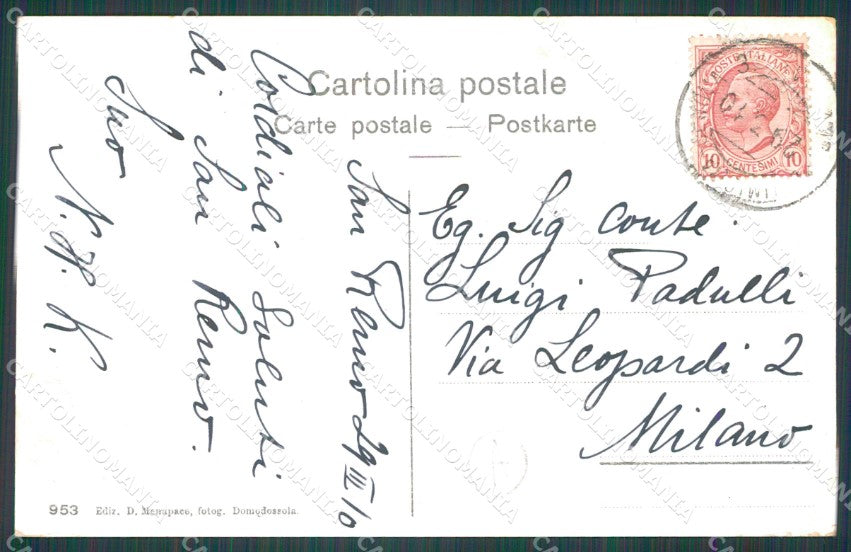 Cartolina postale
Carte postale — Postkarte
POSTE ITALIANE
10 CENTESIMI 10
San Remo 29 III 10
Cordiali Saluti
di San Remo.
Suo
N. H. K.
Eg. Sig conte.
Luigi Padulli
Via Leopardi 2
Milano
953 Ediz. D. fotog. Domodossola.
CARTOLINOMANIA